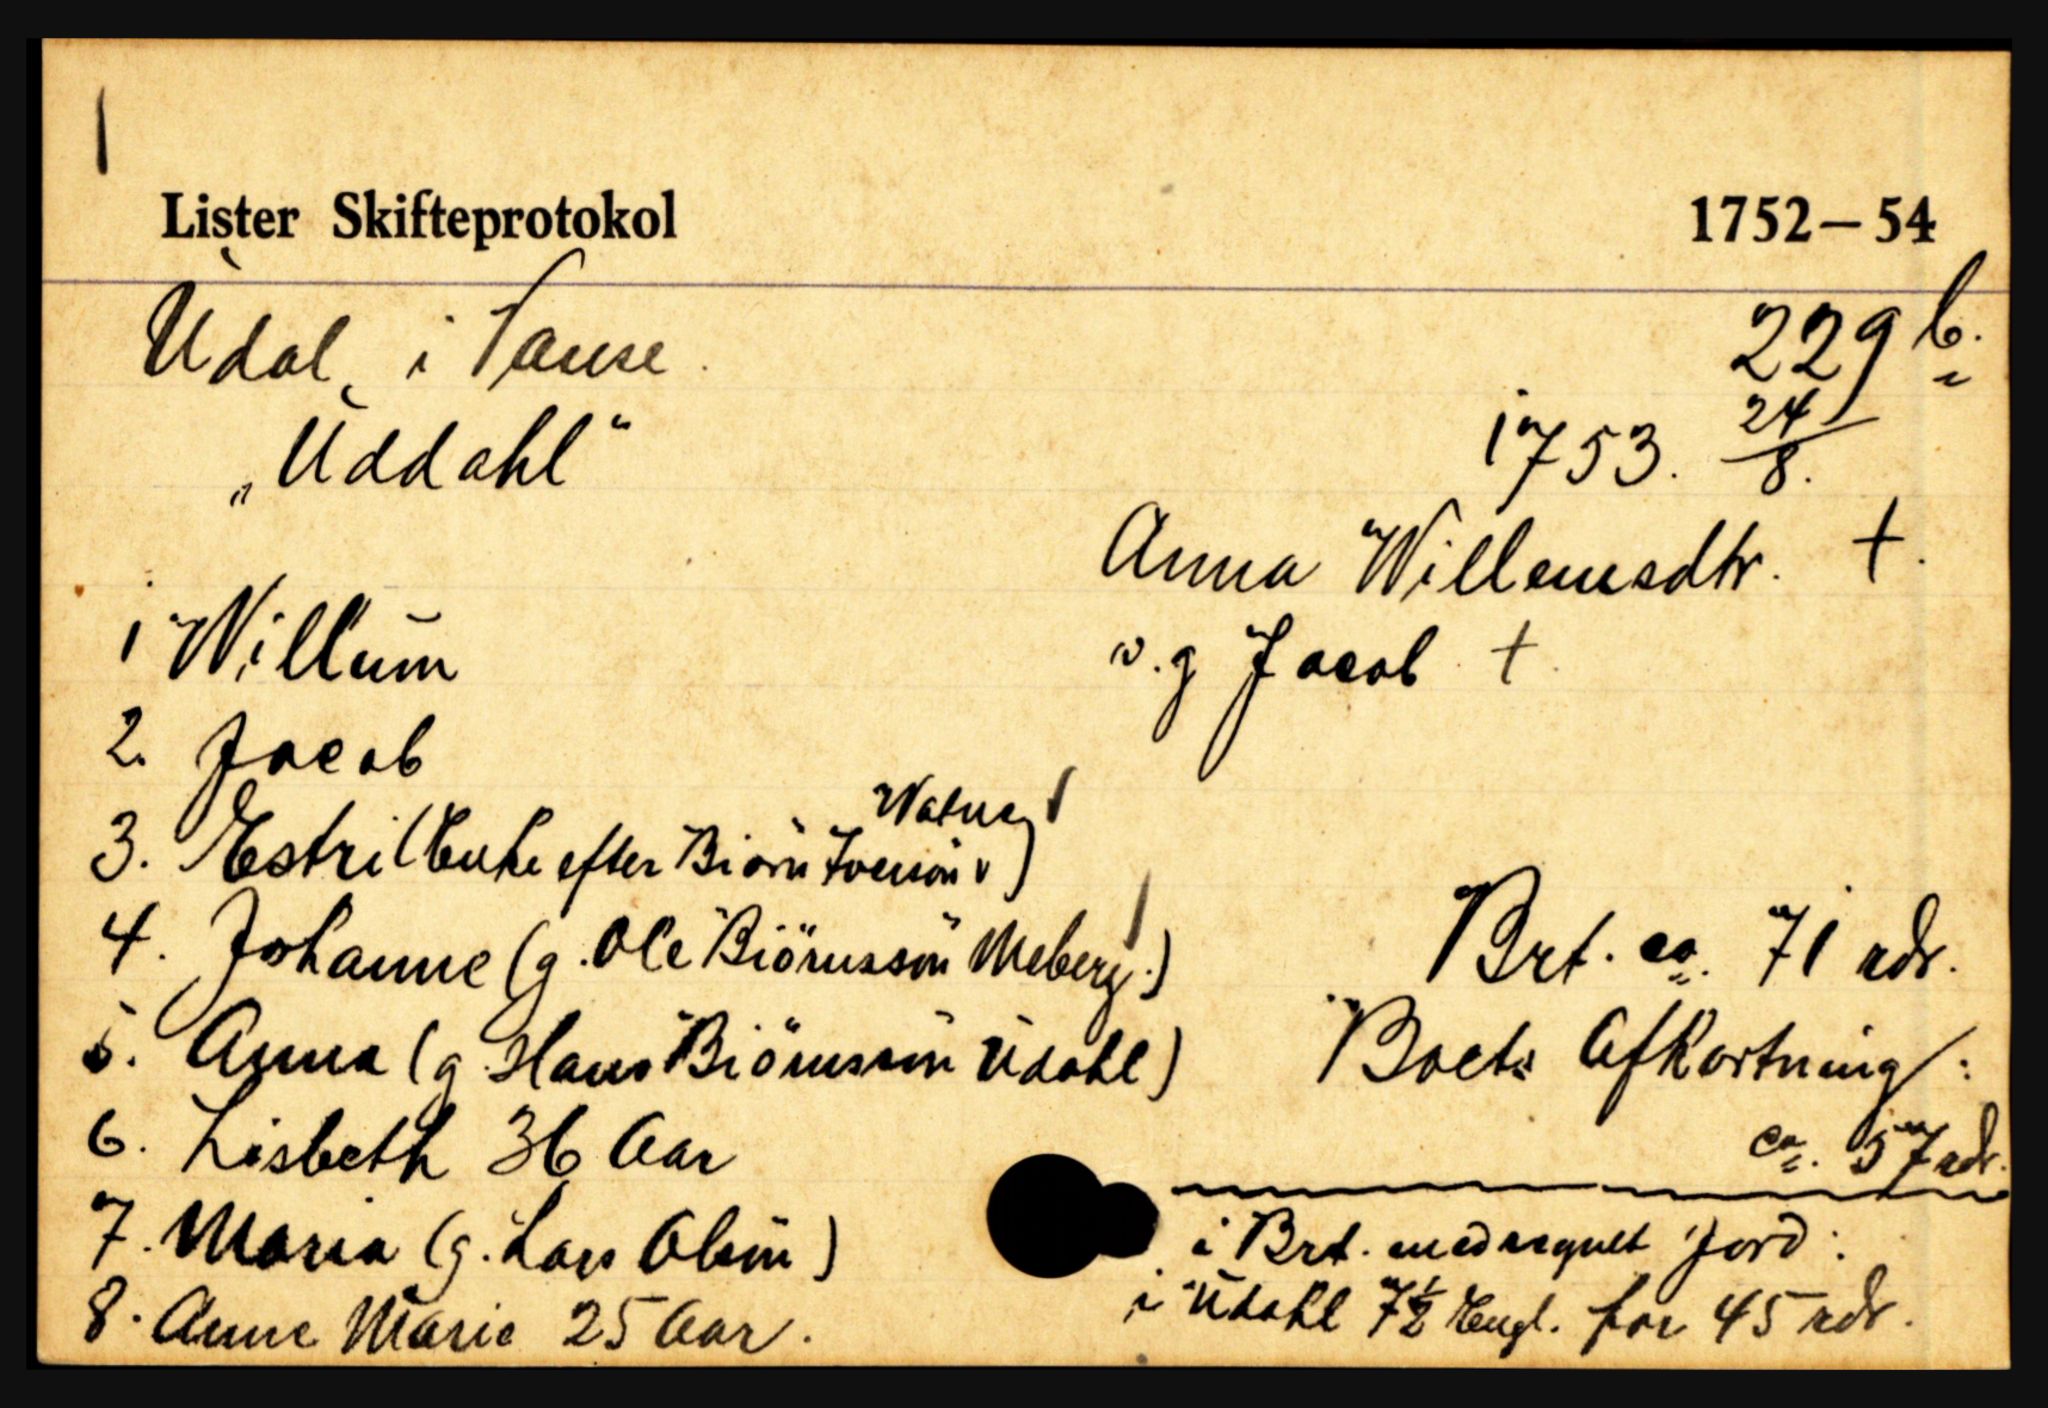 Lister Skifteprotokol 1752-54
Udal, i Vanse. 229 b.
„Uddahl“ 1753. 24/8.
Anna Willemsdtr. †.
v.g Jacob †.
1 Willum
2. Jacob
3. Estri (Enke efter Biörn Iversön Watne)
4. Johanne (g. Ole Biörnssön Meberg.)
5. Anna (g. Hans Biörnssön Udahl)
6. Lisbeth 36 Aar
7. Maria (g. Lars Olsön)
8. Anne Marie 25 Aar.
Brt. ca. 71 rdr.
Boets Afkortning:
ca. 57 rdr.
i Brt. medregnet Jord:
i Udahl 7½ Engl. for 45 rdr.